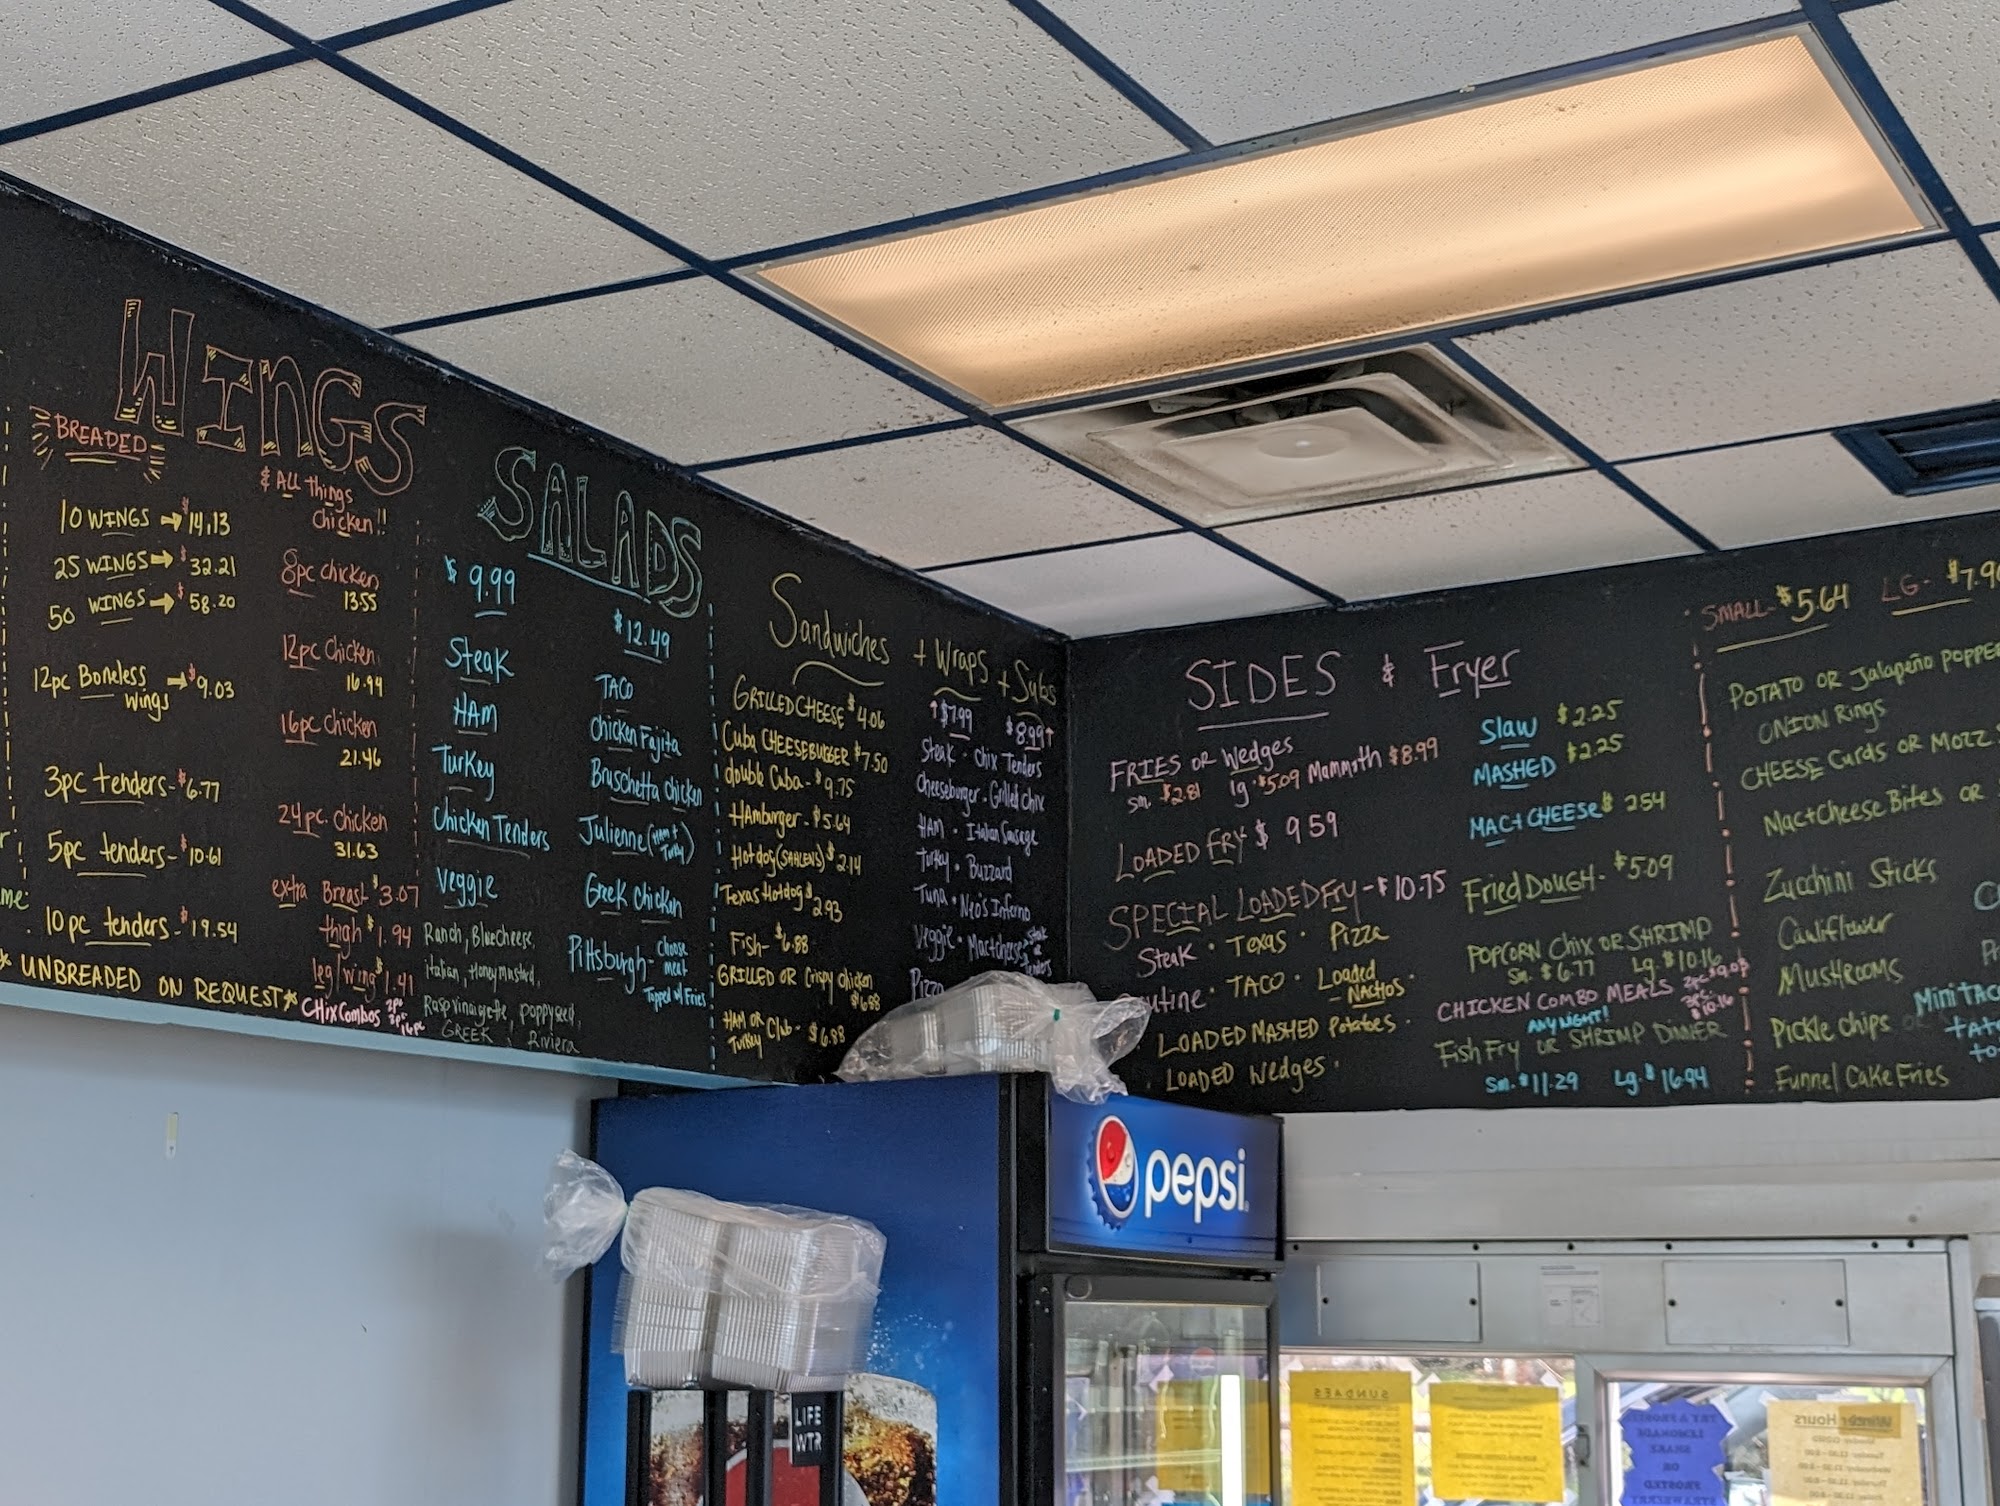 WINGS
BREADED
& All things
chicken!!
10 WINGS → $14.13
25 WINGS → $32.21
50 WINGS → $58.20
12pc Boneless
wings → $9.03
3pc tenders - $6.77
5pc tenders - $10.61
10pc tenders - $19.54
* UNBREADED ON REQUEST *
8pc chicken
13.55
12pc chicken
16.94
16pc chicken
21.46
24pc. chicken
31.63
extra Breast $3.07
thigh $1.94
leg/wing $1.41
Chix Combos
SALADS
$9.99
Steak
HAM
Turkey
Chicken Tenders
Veggie
Ranch, Bluecheese,
Italian, Honey mustard,
Rasp vinaigrette, poppyseed,
GREEK, Riviera
$12.49
TACO
chicken Fajita
Bruschetta chicken
Julienne (HAM + Turkey)
Greek Chicken
Pittsburgh - choose
meat
Topped w/ Fries
Sandwiches + Wraps + Subs
GRILLED CHEESE $4.06
Cuba CHEESEBURGER $7.50
double Cuba - $9.75
Hamburger - $5.64
Hot dog (SAHLENS) $2.14
Texas Hotdog $2.93
Fish - $6.88
GRILLED OR Crispy Chicken
$6.88
HAM OR
Turkey Club - $6.88
↑$7.99 $8.99↑
Steak · Chix Tenders
Cheeseburger · Grilled Chix
HAM · Italian Sausage
Turkey · Buzzard
Tuna · Neo's Inferno
Veggie · Mac+cheese
Pizza
SIDES & Fryer
FRIES OR Wedges
sm. $2.81 lg $5.09 Mammoth $8.99
LOADED FRY $9.59
SPECIAL LOADED FRY - $10.75
Steak · Texas · Pizza
utine · TACO · Loaded
NACHOS
LOADED MASHED Potatoes ·
LOADED Wedges ·
Slaw $2.25
MASHED $2.25
MAC+CHEESE $2.54
Fried DOUGH - $5.09
POPCORN Chix OR SHRIMP
Sm. $6.77 Lg. $10.16
CHICKEN COMBO MEALS 2pc $9.03
3pc. $10.16
ANY NIGHT!
Fish Fry OR SHRIMP DINNER
Sm. $11.29 Lg. $16.94
SMALL - $5.64 LG - $7.9
POTATO OR Jalapeño POPPE
ONION Rings
CHEESE Curds OR MOZZ
Mac+Cheese Bites OR
Zucchini Sticks
Cauliflower
MUSHROOMS
Pickle Chips OR Mini TAC
Funnel Cake Fries
pepsi
LIFE
WTR
SUNDAES
TRY A FROSTED
LEMONADE
SHAKE
OR
FROSTED
STRAWBERRY
Winter Hours